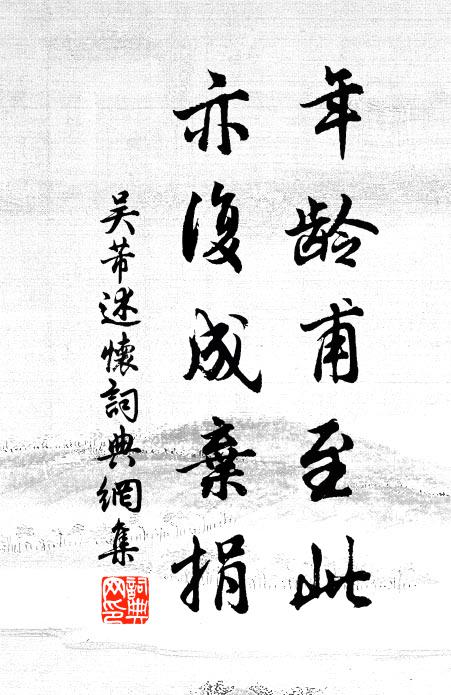 年龄甫至此
亦復成棄捐
吴芾述懷詞典網集
詞典网印